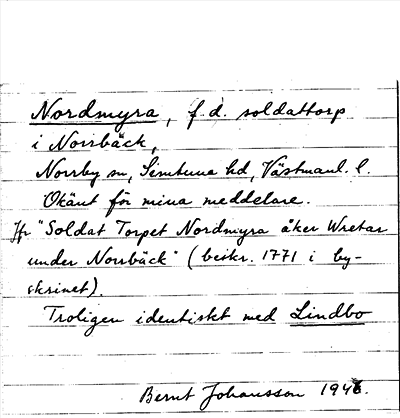 Nordmyra, f.d. soldattorp
i Norrbäck,
Norrby sn, Simtuna hd, Västmanl. l.
Okänt för mina meddelare.
Jfr "Soldat Torpet Nordmyra åker Wretar
under Norrbäck" (beskr. 1771 i by-
skrinet).
Troligen identiskt med Lindbo
Bernt Johansson 194